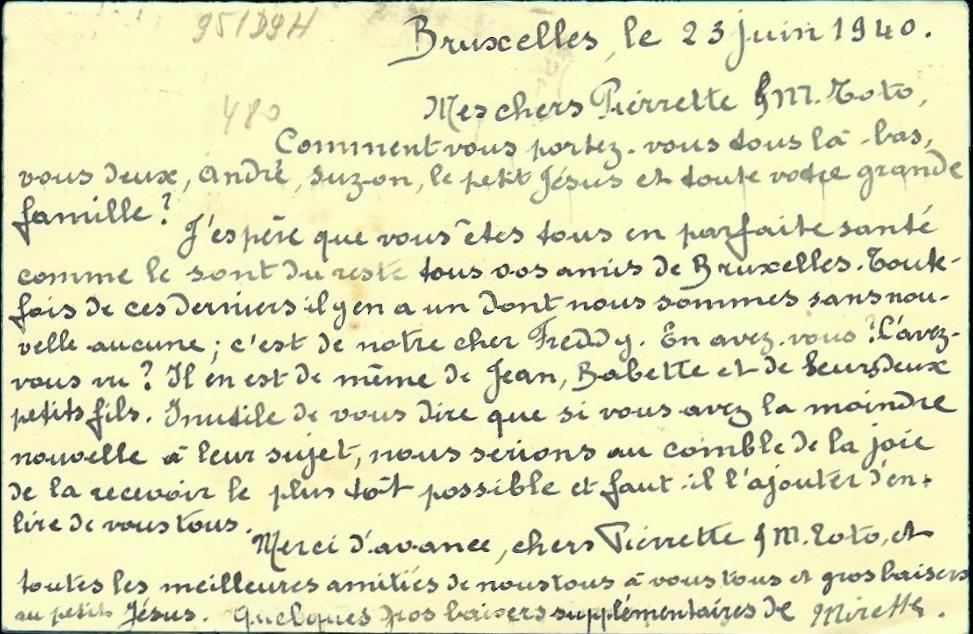 951D9H
Bruxelles, le 23 juin 1940.
480
Mes chers Pierrette & M. Toto,
Comment vous portez-vous tous là-bas,
vous deux, André, Suz-on, le petit Jésus et toute votre grande
famille?
J'espère que vous êtes tous en parfaite santé
comme le sont du reste tous vos amis de Bruxelles. Toute-
fois de ces derniers il y en a un dont nous sommes sans nou-
velle aucune; c'est de notre cher Freddy. En avez-vous? L'avez-
vous vu? Il en est de même de Jean, Babette et de leurs deux
petits fils. Inutile de vous dire que si vous avez la moindre
nouvelle à leur sujet, nous serions au comble de la joie
de la recevoir le plus tôt possible et faut-il l'ajouter d'en
lire de vous tous.
Merci d'avance, chers Pierrette & M. Toto, et
toutes les meilleures amitiés de nous tous à vous tous et gros baisers
au petit Jésus. Quelques gros baisers supplémentaires de Mirette.